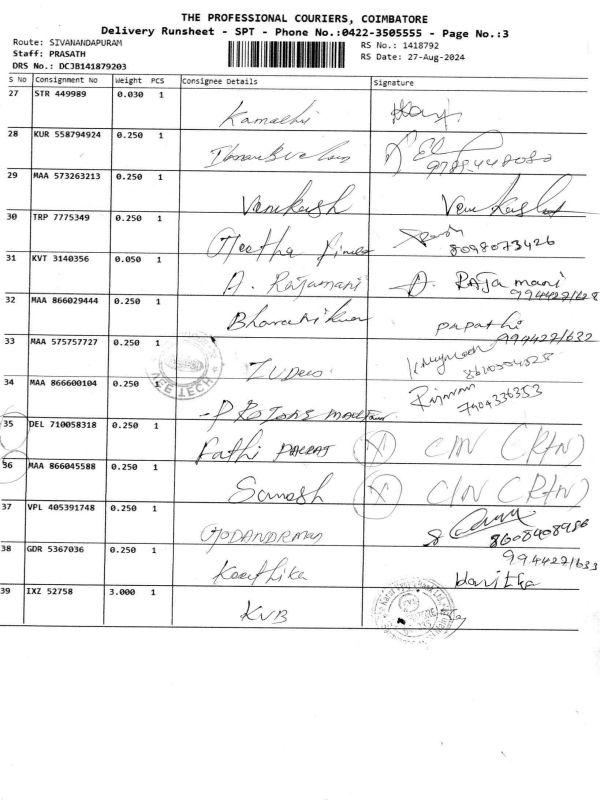 THE PROFESSIONAL COURIERS, COIMBATORE
Delivery Runsheet - SPT - Phone No.:0422-3505555 - Page No.:3
Route: SIVANANDAPURAM
RS No.: 1418792
Staff: PRASATH
RS Date: 27-Aug-2024
DRS No.: DCJB141879203
S No Consignment No Weight PCS Consignee Details Signature
27 STR 449989 0.030 1
Kamalhi
28 KUR 558794924 0.250 1
29 MAA 573263213 0.250 1
Vanikash
30 TRP 7775349 0.250 1
Geetha
8098073426
31 KVT 3140356 0.050 1
A. Rajamani A. Rajamani
9944271628
32 MAA 866029444 0.250 1
Bharanikumar papathi
994427/632
33 MAA 575757727 0.250 1
34 MAA 866600104 0.250 1
7904336353
35 DEL 710058318 0.250 1
Fathi (X) C/N (RTN)
36 MAA 866045588 0.250 1
Somash (X) C/N (RTN)
37 VPL 405391748 0.250 1
8608408956
38 GDR 5367036 0.250 1
9944271633
Keerthika Haritha
39 IXZ 52758 3.000 1
KVB